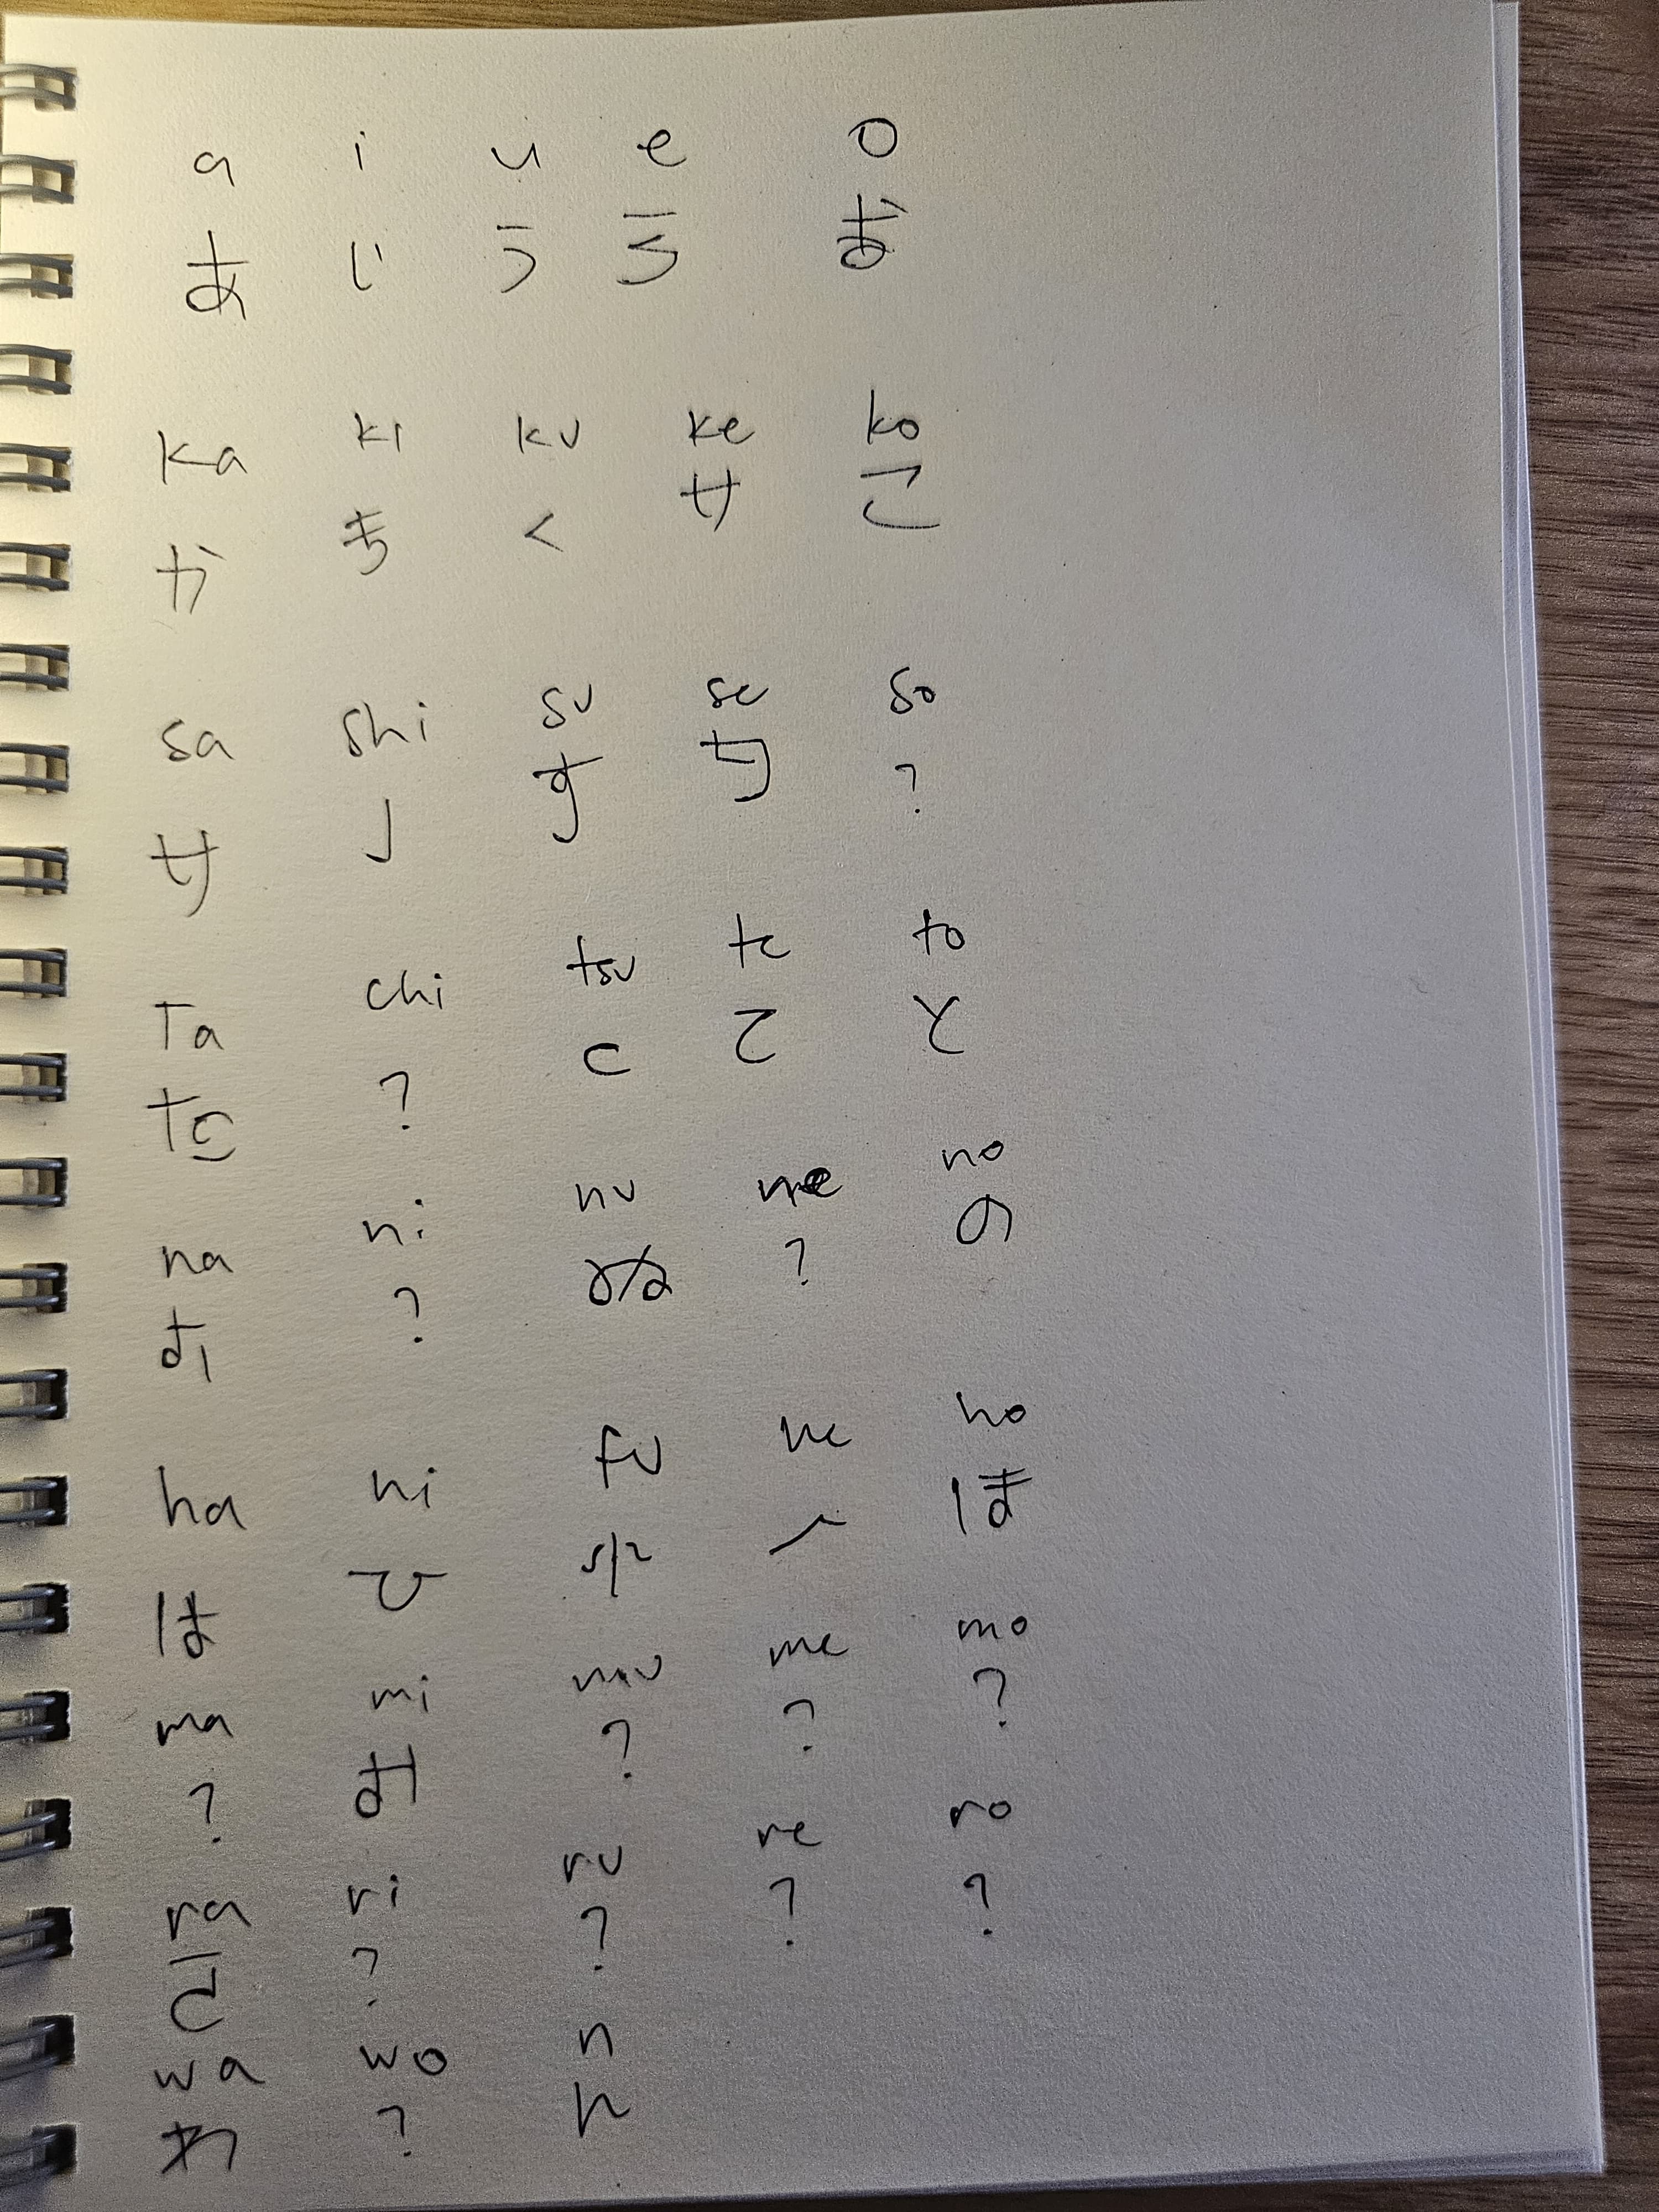 a i u e o
あ い う え お
ka ki ku ke ko
か き く サ こ
sa shi su se so
サ す ?
Ta chi tsu te to
た ? て と
na ni nu ne no
? ぬ ? の
ha hi fu he ho
は ひ ふ へ ほ
ma mi mu me mo
? ? ? ?
ra ri ru re ro
? ? ? ?
wa wo n
わ ? ん